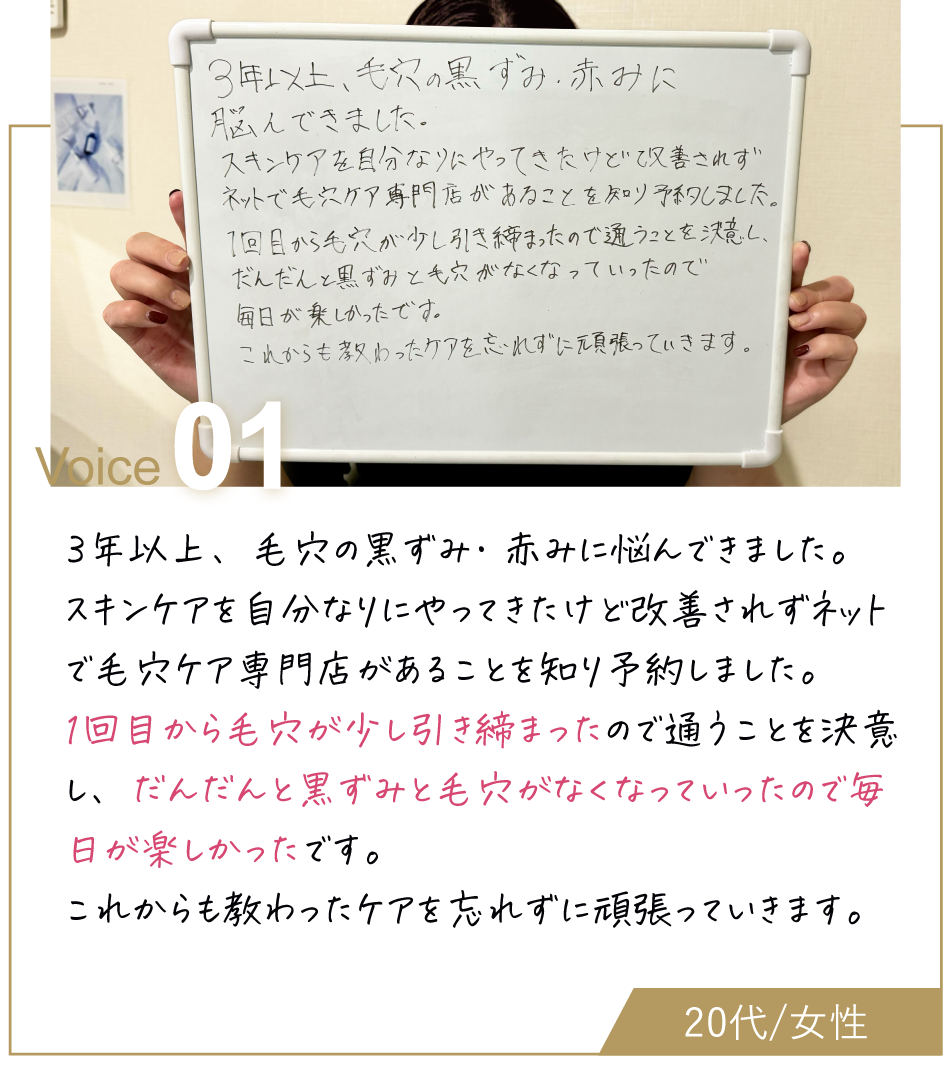 3年以上、毛穴の黒ずみ・赤みに
悩んできました。
スキンケアを自分なりにやってきたけど改善されず
ネットで毛穴ケア専門店があることを知り予約しました。
1回目から毛穴が少し引き締まったので通うことを決意し、
だんだんと黒ずみと毛穴がなくなっていったので
毎日が楽しかったです。
これからも教わったケアを忘れずに頑張っていきます。
Voice 01
3年以上、毛穴の黒ずみ・赤みに悩んできました。
スキンケアを自分なりにやってきたけど改善されずネット
で毛穴ケア専門店があることを知り予約しました。
1回目から毛穴が少し引き締まったので通うことを決意
し、だんだんと黒ずみと毛穴がなくなっていったので毎
日が楽しかったです。
これからも教わったケアを忘れずに頑張っていきます。
20代/女性